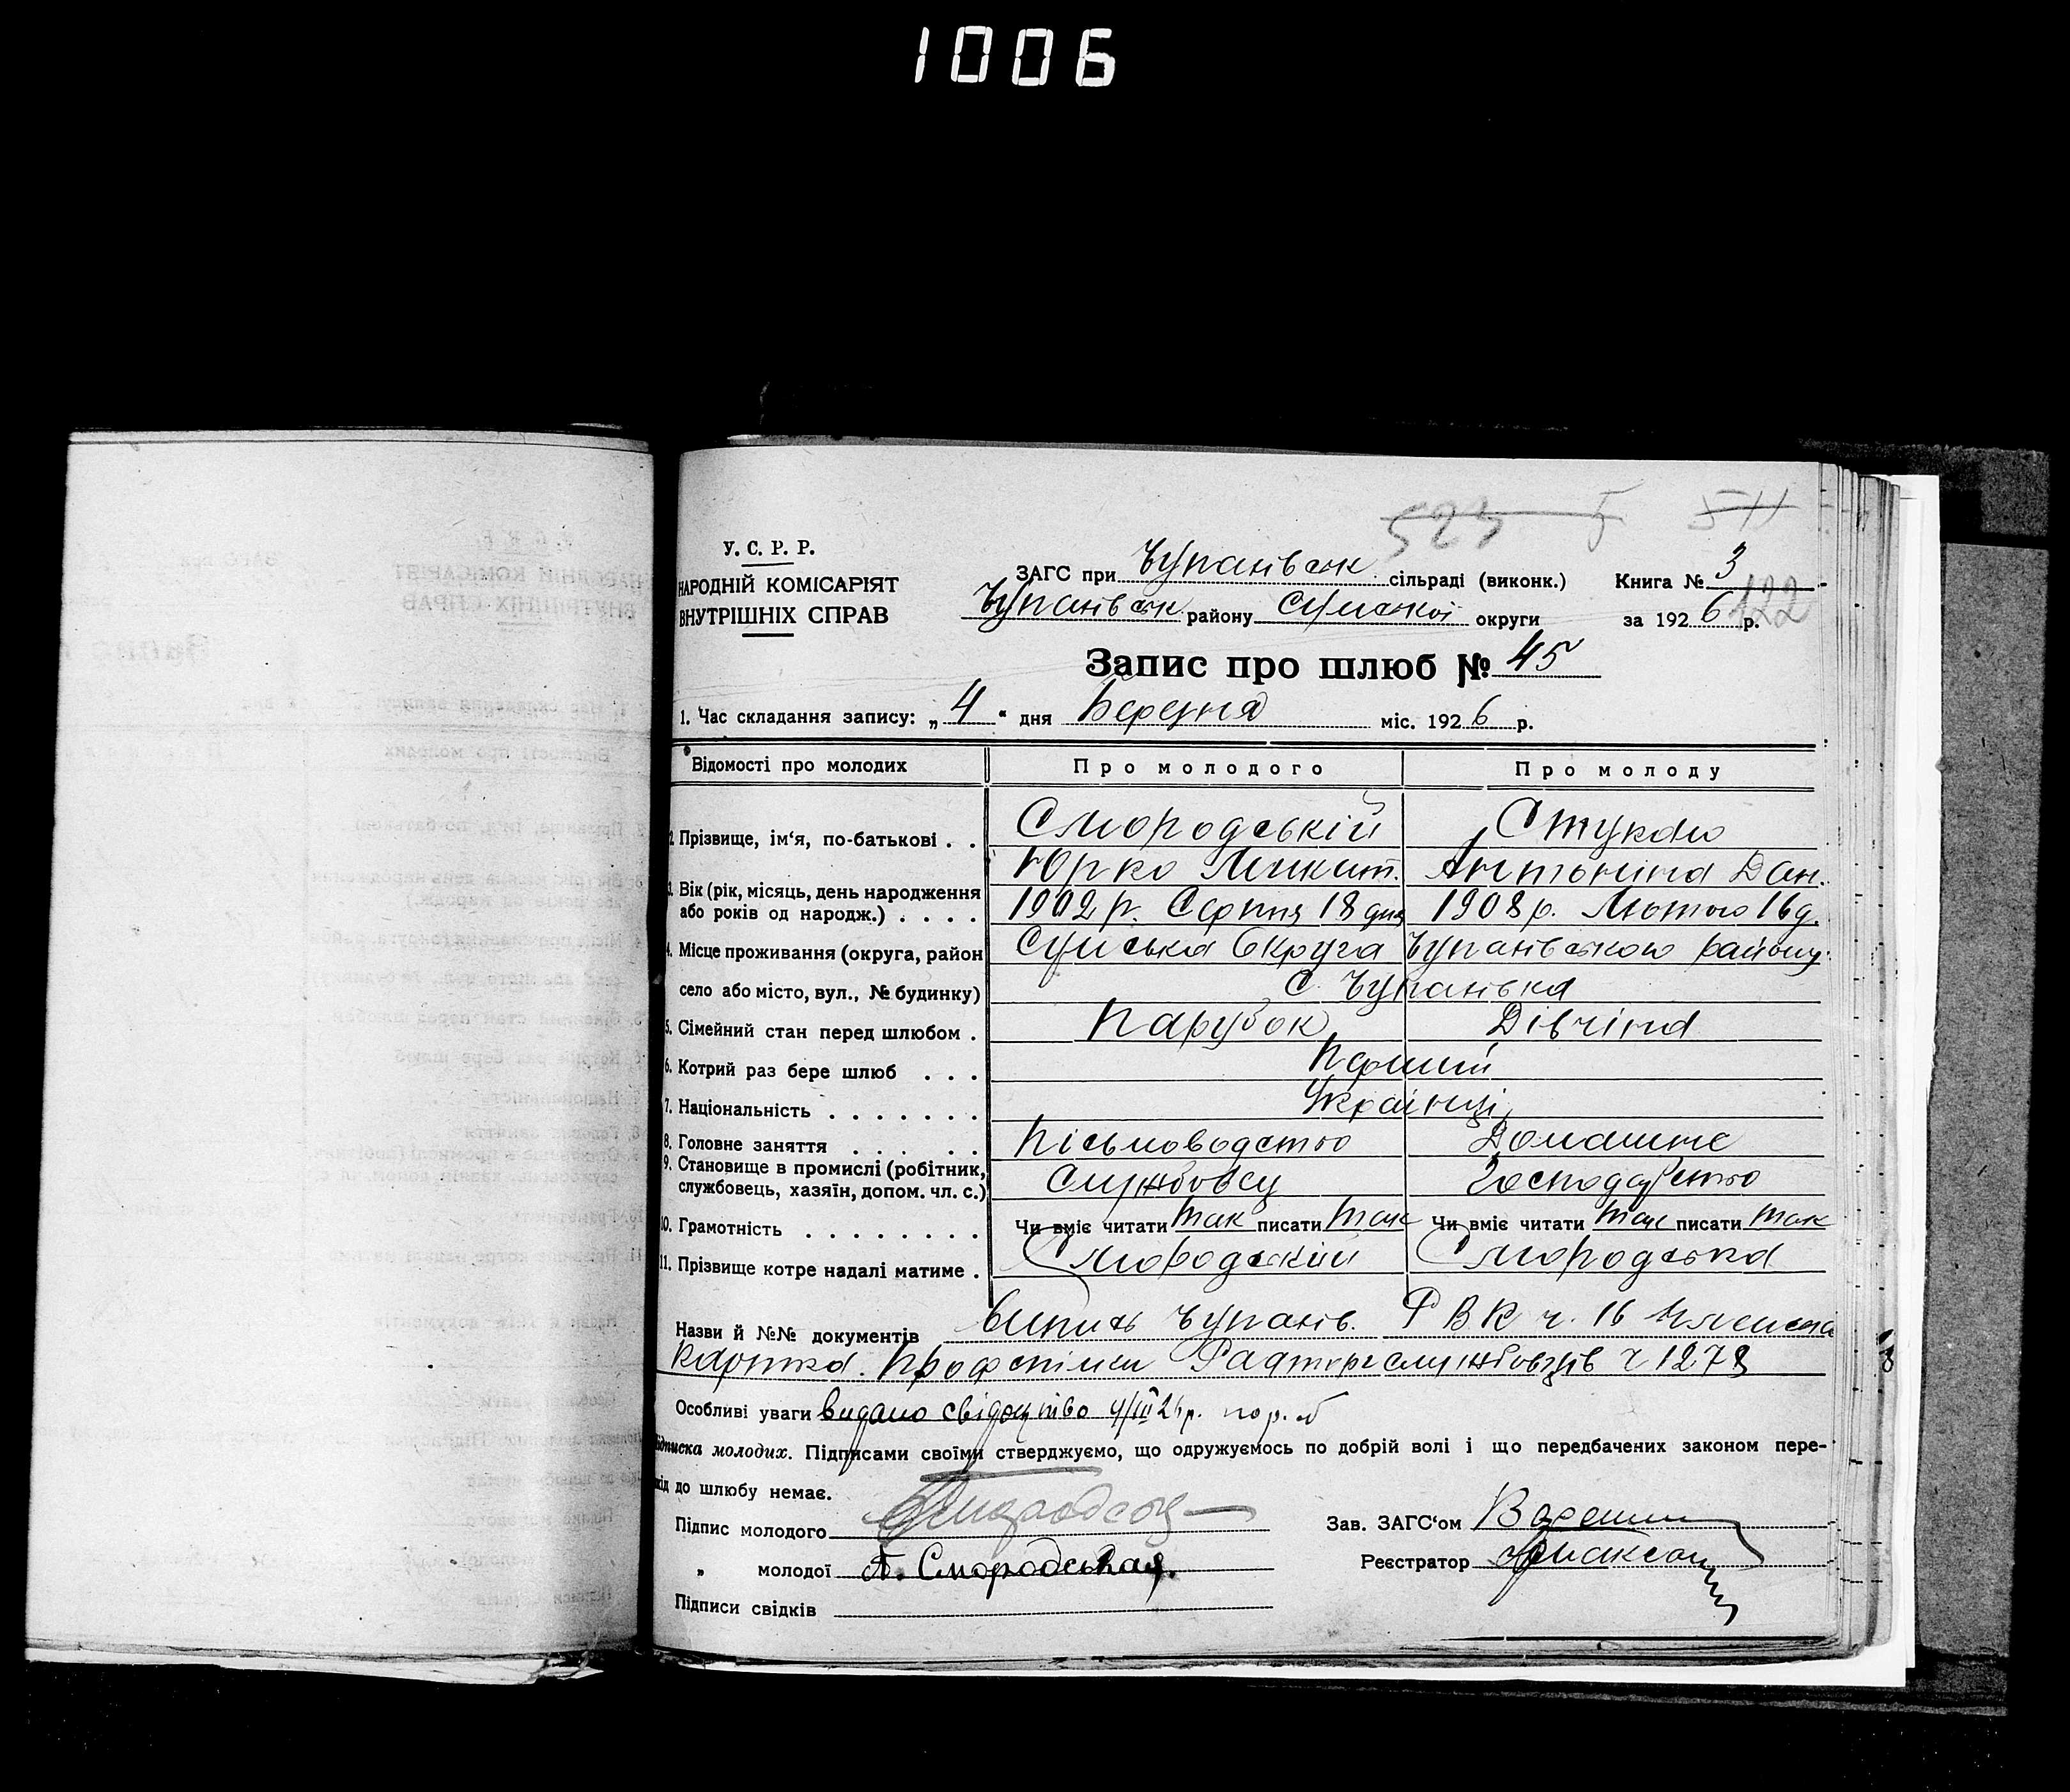 1006
523 5 511
У. С. Р. Р.
НАРОДНІЙ КОМІСАРІЯТ
ВНУТРІШНІХ СПРАВ
ЗАГС при Чупахівськ. сільраді (виконк.) Книга № 3
Чупахівськ. району Сумської округи за 1926 р.
122
Запис про шлюб № 45
1. Час складання запису: „ 4 “ дня Березня міс. 1926 р.
Відомості про молодих Про молодого Про молоду
2. Прізвище, ім‘я, по-батькові . . Смородській
Юрко Микит. Антоніна Дан.
3. Вік (рік, місяць, день народження
або років од народж.) . . . . 1902 р. Серпня 18 дня 1908 р. Лютого 16 д.
4. Місце проживання (округа, район Сумська Округа Чупахівського району
село або місто, вул., № будинку) с. Чупахівка
5. Сімейний стан перед шлюбом . Парубок Дівчіна
6. Котрий раз бере шлюб . . . Перший
7. Національність . . . . . . . Українці
8. Головне заняття . . . . . Пісьмоводство Домашнє
9. Становище в промислі (робітник,
службовець, хазяїн, допом. чл. с.) Службовец Господарство
10. Грамотність . . . . . . . . Чи вміє читати так писати так Чи вміє читати так писати так
11. Прізвище котре надалі матиме . Смородский Смородська
Назви й №№ документів Випись Чупахів. РВК ч. 16 Членська
картка. Профспілки Радторгслужбовців ч 1278
Особливі уваги видано свідоцтво 4/III 26 р.
Підписка молодих. Підписами своїми стверджуємо, що одружуємось по добрій волі і що передбачених законом пере-
кід до шлюбу немає.
Підпис молодого
Зав. ЗАГС‘ом
„ молодої А. Смородськая.
Реєстратор
Підписи свідків